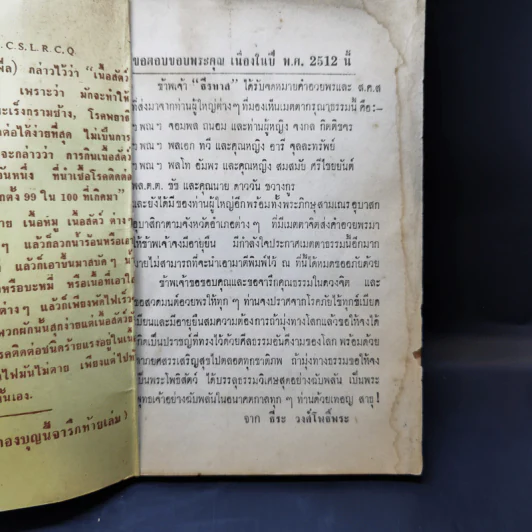 . C. S. L. R. C. Q.
กล่าวไว้ว่า "เนื้อสัตว์
เพราะว่า มักจะทำให้
โรคพยาธิ
ต่อได้ง่ายที่สุด ไม่เป็นการ
จะกล่าวว่า การกินเนื้อสัตว์
อันหนึ่ง ที่นำเชื้อโรคติดต่อ
ตั้ง 99 ใน 100 ทีเดียว"
เนื้อหมู เนื้อสัตว์ ต่างๆ
ๆ แล้วก็ลวกน้ำร้อนหรือเอา
แล้วก็เอาขึ้นมาสบัด ๆ น้ำ
หรือบะหมี่ หรือเนื้อที่เอาไป
ต่างๆ แล้วก็เพียงพักไฟเร็ว
แต่เนื้อสัตว์
โรคติดต่อชนิดร้ายแรงอยู่ในเนื้อ
ไฟมันไม่ตาย เพียงแต่ไป
นเอง.
ท้ายเล่ม )
ขอตอบขอบพระคุณ เนื่องในปี พ.ศ. 2512 นี้
ข้าพเจ้า "ธีรทาส" ได้รับจดหมายคำอวยพรและ ส.ค.ส
ที่ส่งมาจากท่านผู้ใหญ่ต่างๆ ที่มองเห็นเมตตากรุณาธรรมนี้ คือ:-
ฯพณฯ จอมพล ถนอม และท่านผู้หญิง จงกล กิตติขจร
ฯพณฯ พลเอก ทวี และคุณหญิง อารี จุลละทรัพย์
ฯพณฯ พลโท อัมพร และคุณหญิง สมสมัย ศรีไชยยันต์
พล.ต.ต. ชัช และคุณนาย ดาววัน ชวางกูร
และยังได้มีของท่านผู้ใหญ่อีกพร้อมทั้งพระภิกษุสามเณรอุบาสก
อุบาสิกาตามจังหวัดอำเภอต่างๆ ที่มีเมตตาจิตส่งคำอวยพรมา
ให้ข้าพเจ้าจงมีอายุยืน มีกำลังใจประกาศเมตตาธรรมนี้อีกมาก
มายไม่สามารถที่จะนำเอามาตีพิมพ์ไว้ ณ ที่นี้ได้หมดขออภัยด้วย
ข้าพเจ้าขอขอบคุณและขอจารึกคุณธรรมในดวงจิต และ
ขอสวดมนต์อวยพรให้ทุก ๆ ท่านจงปราศจากโรคภัยไข้ทุกข์เบียด
เบียนและมีอายุยืนสมความต้องการถ้ามุ่งทางโลกแล้วขอให้จงได้
เกิดเป็นปราชญ์ที่ทรงไว้ด้วยศีลธรรมอันดีงามของโลก พร้อมด้วย
ลาภยศสรรเสริญสุขไปตลอดทุกชาติภพ ถ้ามุ่งทางธรรมขอให้จง
เป็นพระโพธิสัตว์ ได้บรรลุธรรมวิเศษสุดอย่างฉับพลัน เป็นพระ
พุทธเจ้าอย่างฉับพลันในอนาคตกาลทุก ๆ ท่านด้วยเทอญ สาธุ!
จาก ธีระ วงศ์โพธิ์พระ